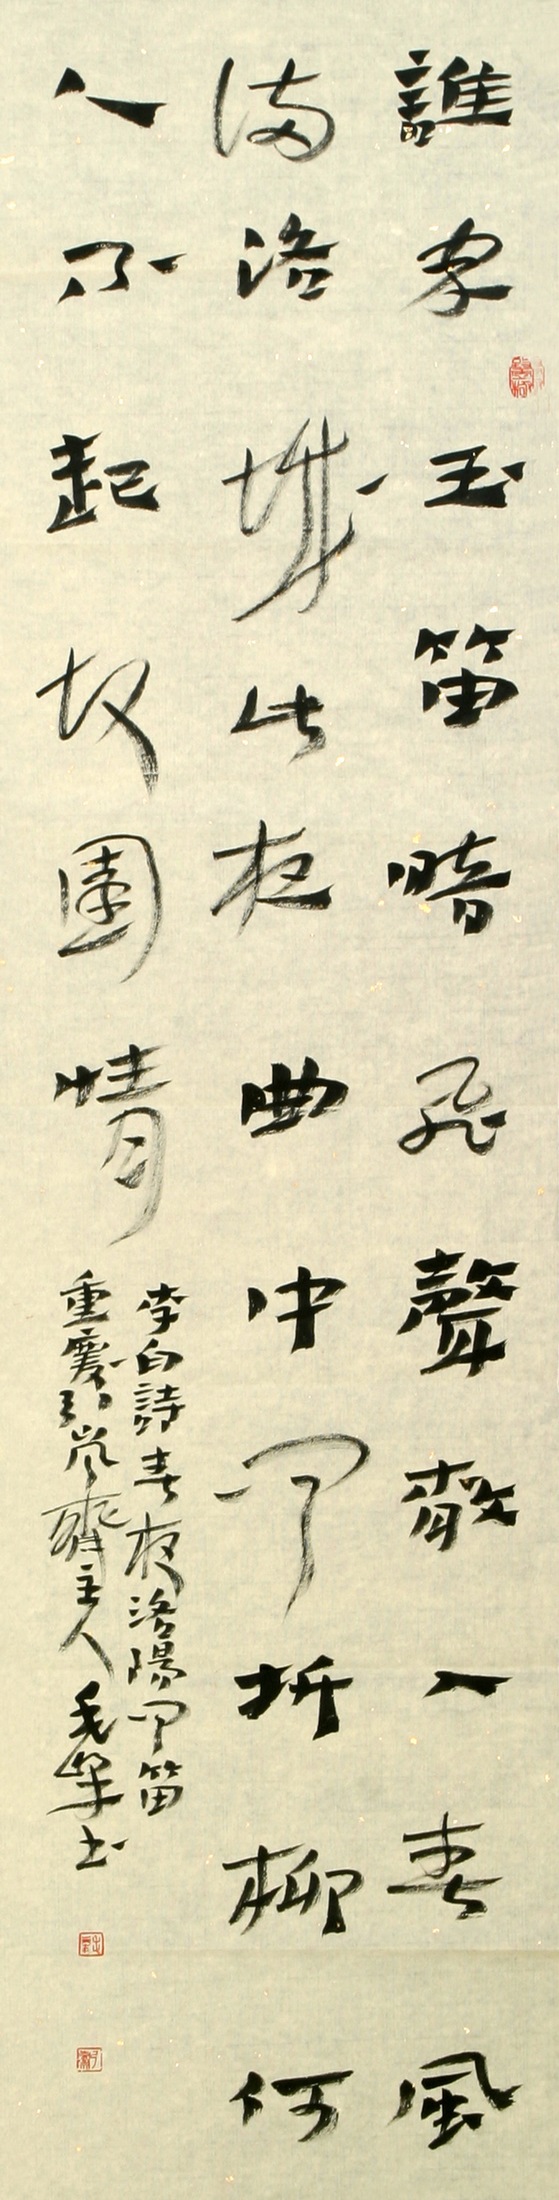 誰家玉笛暗飛聲散入春風
滿洛城此夜曲中聞折柳何
人不起故園情
李白詩春夜洛陽聞笛
重慶 齋主人 書